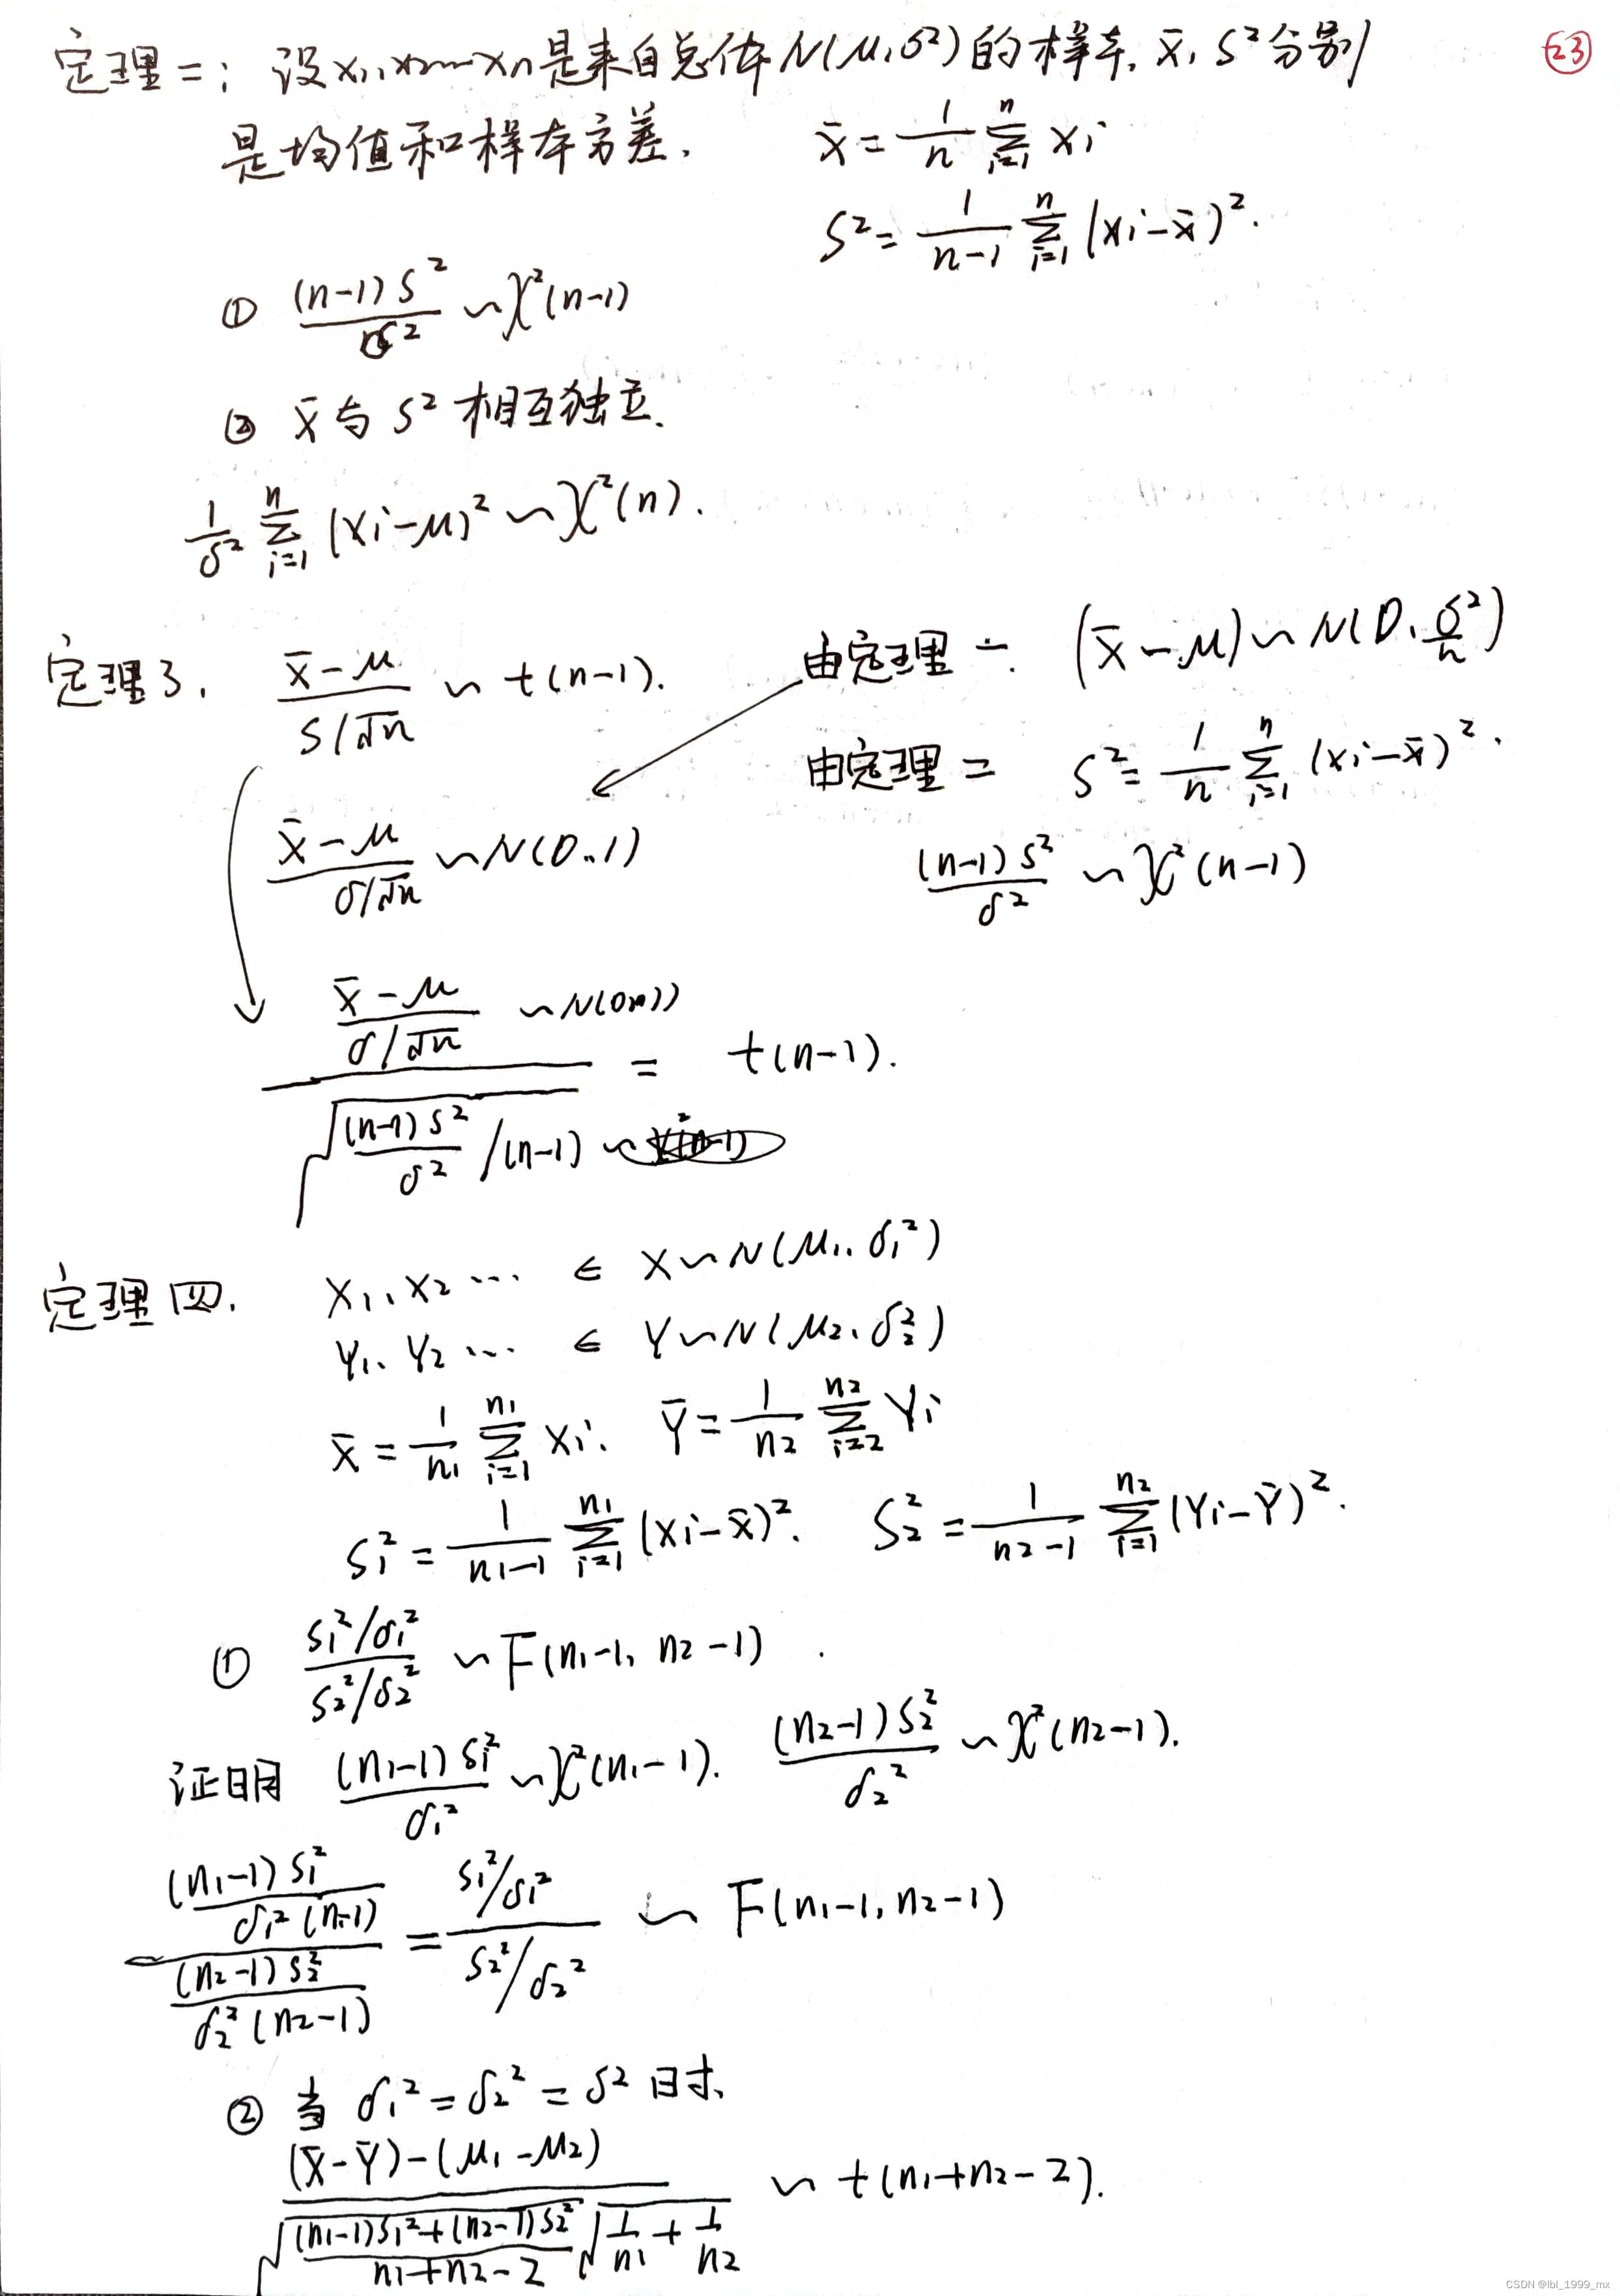 定理二: 设 x₁, x₂…xₙ是来自总体 N(μ, σ²) 的样本, x̄, S² 分别 ㉓
是均值和样本方差. x̄ = 1/n Σᵢ₌₁ⁿ xᵢ
S² = 1/(n-1) Σᵢ₌₁ⁿ (xᵢ - x̄)².
① (n-1)S²/σ² ~ χ²(n-1)
② x̄ 与 S² 相互独立.
1/σ² Σᵢ₌₁ⁿ (xᵢ - μ)² ~ χ²(n).
定理3. (x̄ - μ)/(S/√n) ~ t(n-1). 由定理一. (x̄ - μ) ~ N(0, σ²/n)
由定理二 S² = 1/n Σᵢ₌₁ⁿ (xᵢ - x̄)².
(x̄ - μ)/(σ/√n) ~ N(0, 1) (n-1)S²/σ² ~ χ²(n-1)
(x̄ - μ)/(σ/√n) ~ N(0, 1)
= t(n-1).
√((n-1)S²/σ² / (n-1)) ~
定理四. x₁, x₂ … ∈ X ~ N(μ₁, σ₁²)
Y₁, Y₂ … ∈ Y ~ N(μ₂, σ₂²)
x̄ = 1/n₁ Σᵢ₌₁ⁿ¹ xᵢ. Ȳ = 1/n₂ Σᵢ₌₂ⁿ² Yᵢ
S₁² = 1/(n₁-1) Σᵢ₌₁ⁿ¹ (xᵢ - x̄)². S₂² = 1/(n₂-1) Σᵢ₌₁ⁿ² (Yᵢ - Ȳ)².
① (S₁²/σ₁²)/(S₂²/σ₂²) ~ F(n₁-1, n₂-1)
证明 (n₁-1)S₁²/σ₁² ~ χ²(n₁-1). (n₂-1)S₂²/σ₂² ~ χ²(n₂-1).
((n₁-1)S₁²/σ₁²(n₁-1))/((n₂-1)S₂²/σ₂²(n₂-1)) = (S₁²/σ₁²)/(S₂²/σ₂²) ~ F(n₁-1, n₂-1)
② 当 σ₁² = σ₂² = σ² 时,
((x̄ - Ȳ) - (μ₁ - μ₂))/(√(((n₁-1)S₁² + (n₂-1)S₂²)/(n₁+n₂-2)) √(1/n₁ + 1/n₂)) ~ t(n₁+n₂-2).
CSDN @lbl_1999_mx